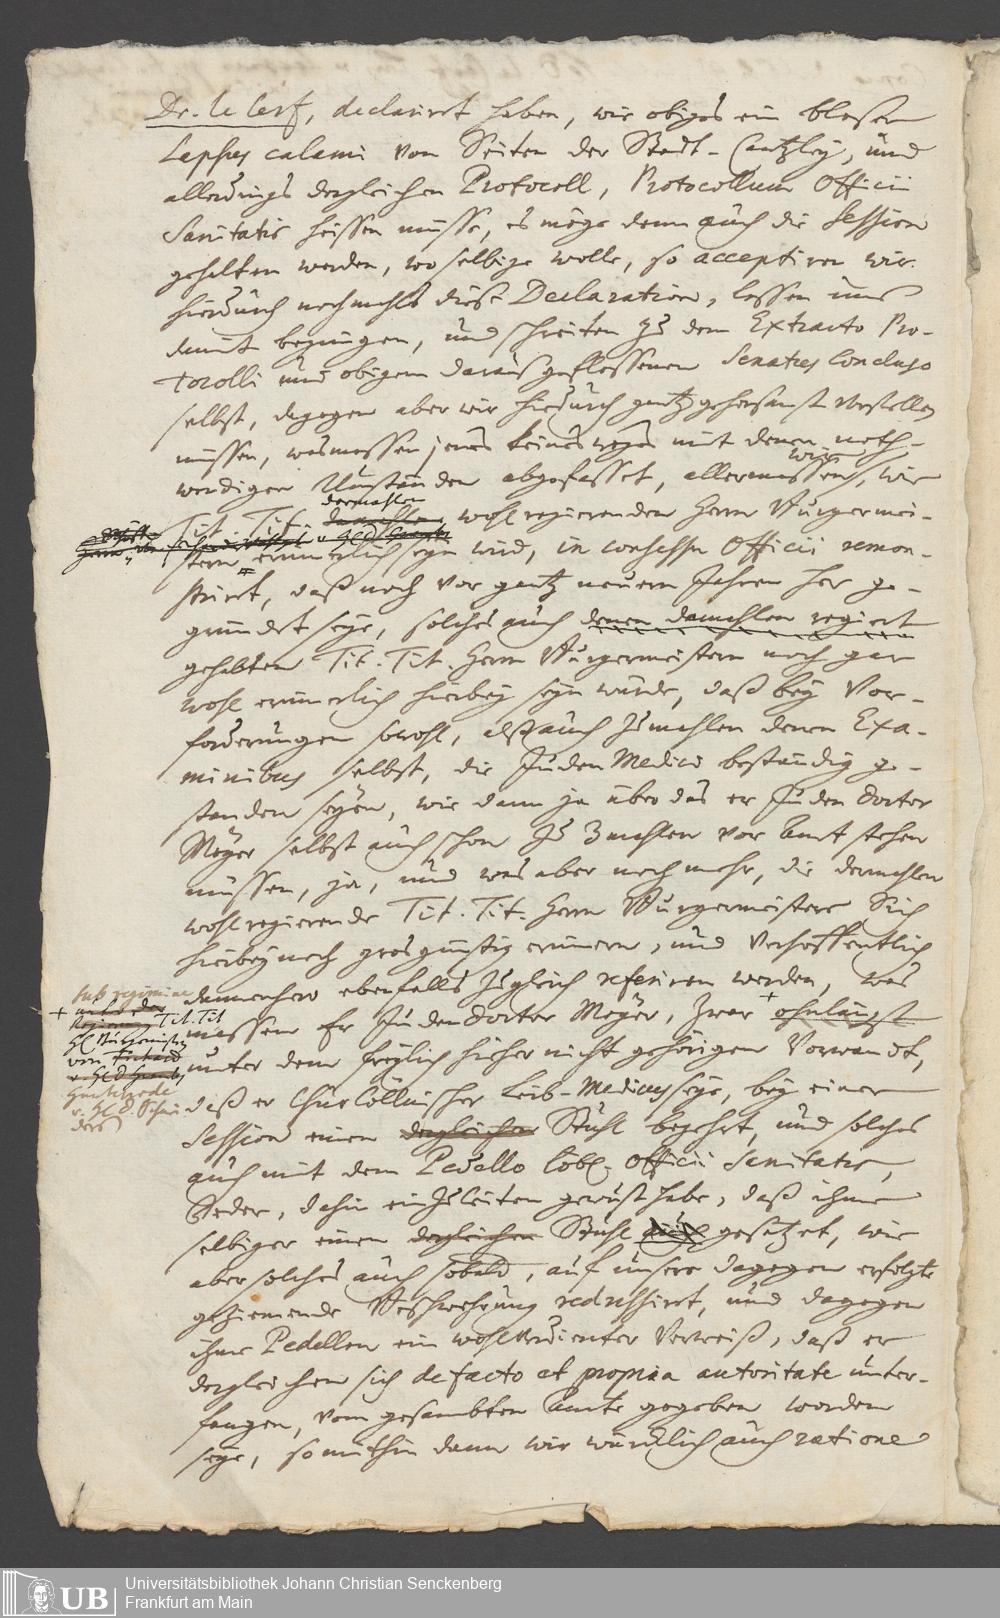 Dr. le Cerf, declarirt haben, wie obiges ein blosen
Lapsus calami von Seiten der Stadt-Cantzley, und
allerdings dergleichen Protocoll, Protocollum Officii
Sanitatis heissen müsse, es möge denn auch die Session
gehalten werden, wo selbige wolle, so acceptiren wir
hierdurch nochmahls diese Declaration, lassen uns
damit begnügen, und schreiten zu dem Extracto Pro-
tocolli und obigem daraus geflossenen Senatus Concluso
selbst, dagegen aber wir hierdurch gantz gehorsamst vorstellen
müssen, wasmassen jenes keinesweges mit denen noth-
wendigen Umständen abgefasset, allermassen wir, wie
dermahlen
Tit. Tit. damahlen wohlregierenden Herrn Burgermei-
stern erinnerlich seyn wird, in consessu Officii remon-
strirt, daß noch vor gantz neuern Jahren her ge-
gründet seye, solches auch denen damahlen regiert
gehabten Tit. Tit. Herrn Burgermeistern noch gar
wohl erinnerlich hierbey seyn würde, daß bey Vor-
forderungen sowohl, alß auch zumahlen denen Exa-
minibus selbst, die Juden Medici beständig ge-
standen seyen, wie dann ja über das er Juden Doctor
Meyer selbst auch schon zu 3 mahlen vor Amt stehen
müssen, ja, und was aber noch mehr, die dermahlen
wohlregierende Tit. Tit. Herrn Burgermeistere Sich
hierbey noch grosgünstig erinnern, und verhoffentlich
dannenhero ebenfalls zugleich referiren werden, was
massen Er Juden Doctor Meyer, zwar + ohnlängst
sub regimine
+ unter der
Regierung Tit. Tit.
H. Burgermeister
von Fichard
unter dem freylich hieher nicht gehörigen Vorwandt,
daß er Chur Cöllnischer Leib-Medicus seye, bey einer
Session einen dergleichen Stuhl begehrt, und solches
auch mit dem Pedello löbl. Officii Sanitatis,
Reder, dahin einzuleiten gewust habe, daß ihme
selbiger einen dergleichen Stuhl gesetzet, wie
aber solches auch sobald, auf unsere dagegen erfolgte
geziemende Beschwehrung redressirt, und dagegen
ihme Pedellen ein wohlverdienter Verweiß, daß er
dergleichen sich de facto et propria autoritate unter-
fangen, vom gesambten Amte gegeben worden
seye, so mithin dann wir würcklich auch ratione
UB Universitätsbibliothek Johann Christian Senckenberg
Frankfurt am Main